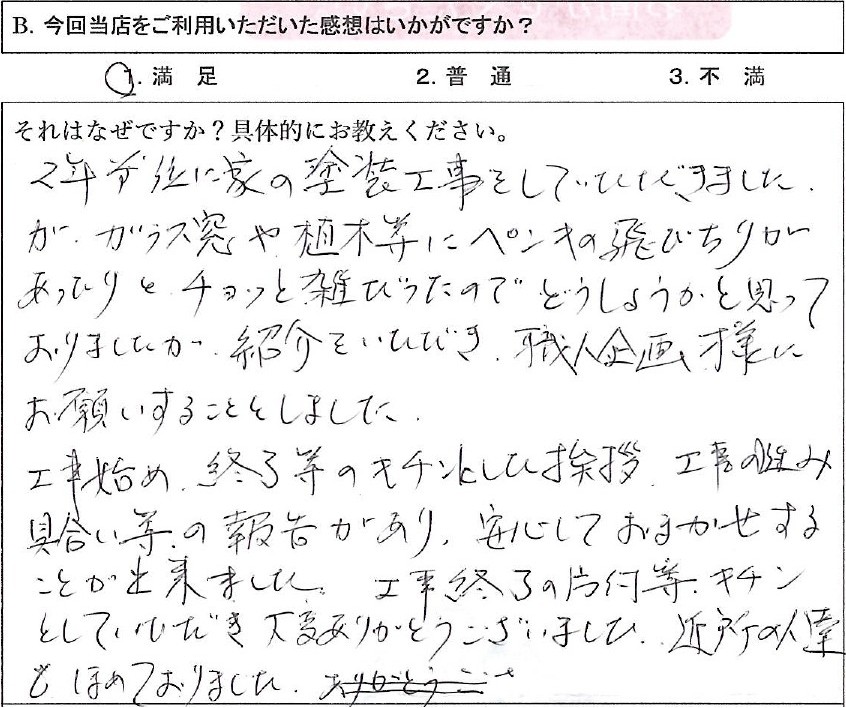 B. 今回当店をご利用いただいた感想はいかがですか?
1. 満 足 2. 普 通 3. 不 満
それはなぜですか?具体的にお教えください。
2年 後に家の塗装工事をしていただきました
が、ガラス窓や植木等にペンキの飛びちりが
あったりと、チョッと雑だったのでどうしようかと思って
おりましたが、紹介をいただき、職人企画様に
お願いすることとしました。
工事始め、終了等のキチンとした挨拶、工事の進み
具合い等の報告があり、安心しておまかせする
ことが出来ました。工事終了の片付等、キチン
としていただき大変ありがとうございました。近所の人達
もほめておりました。ありがとうご